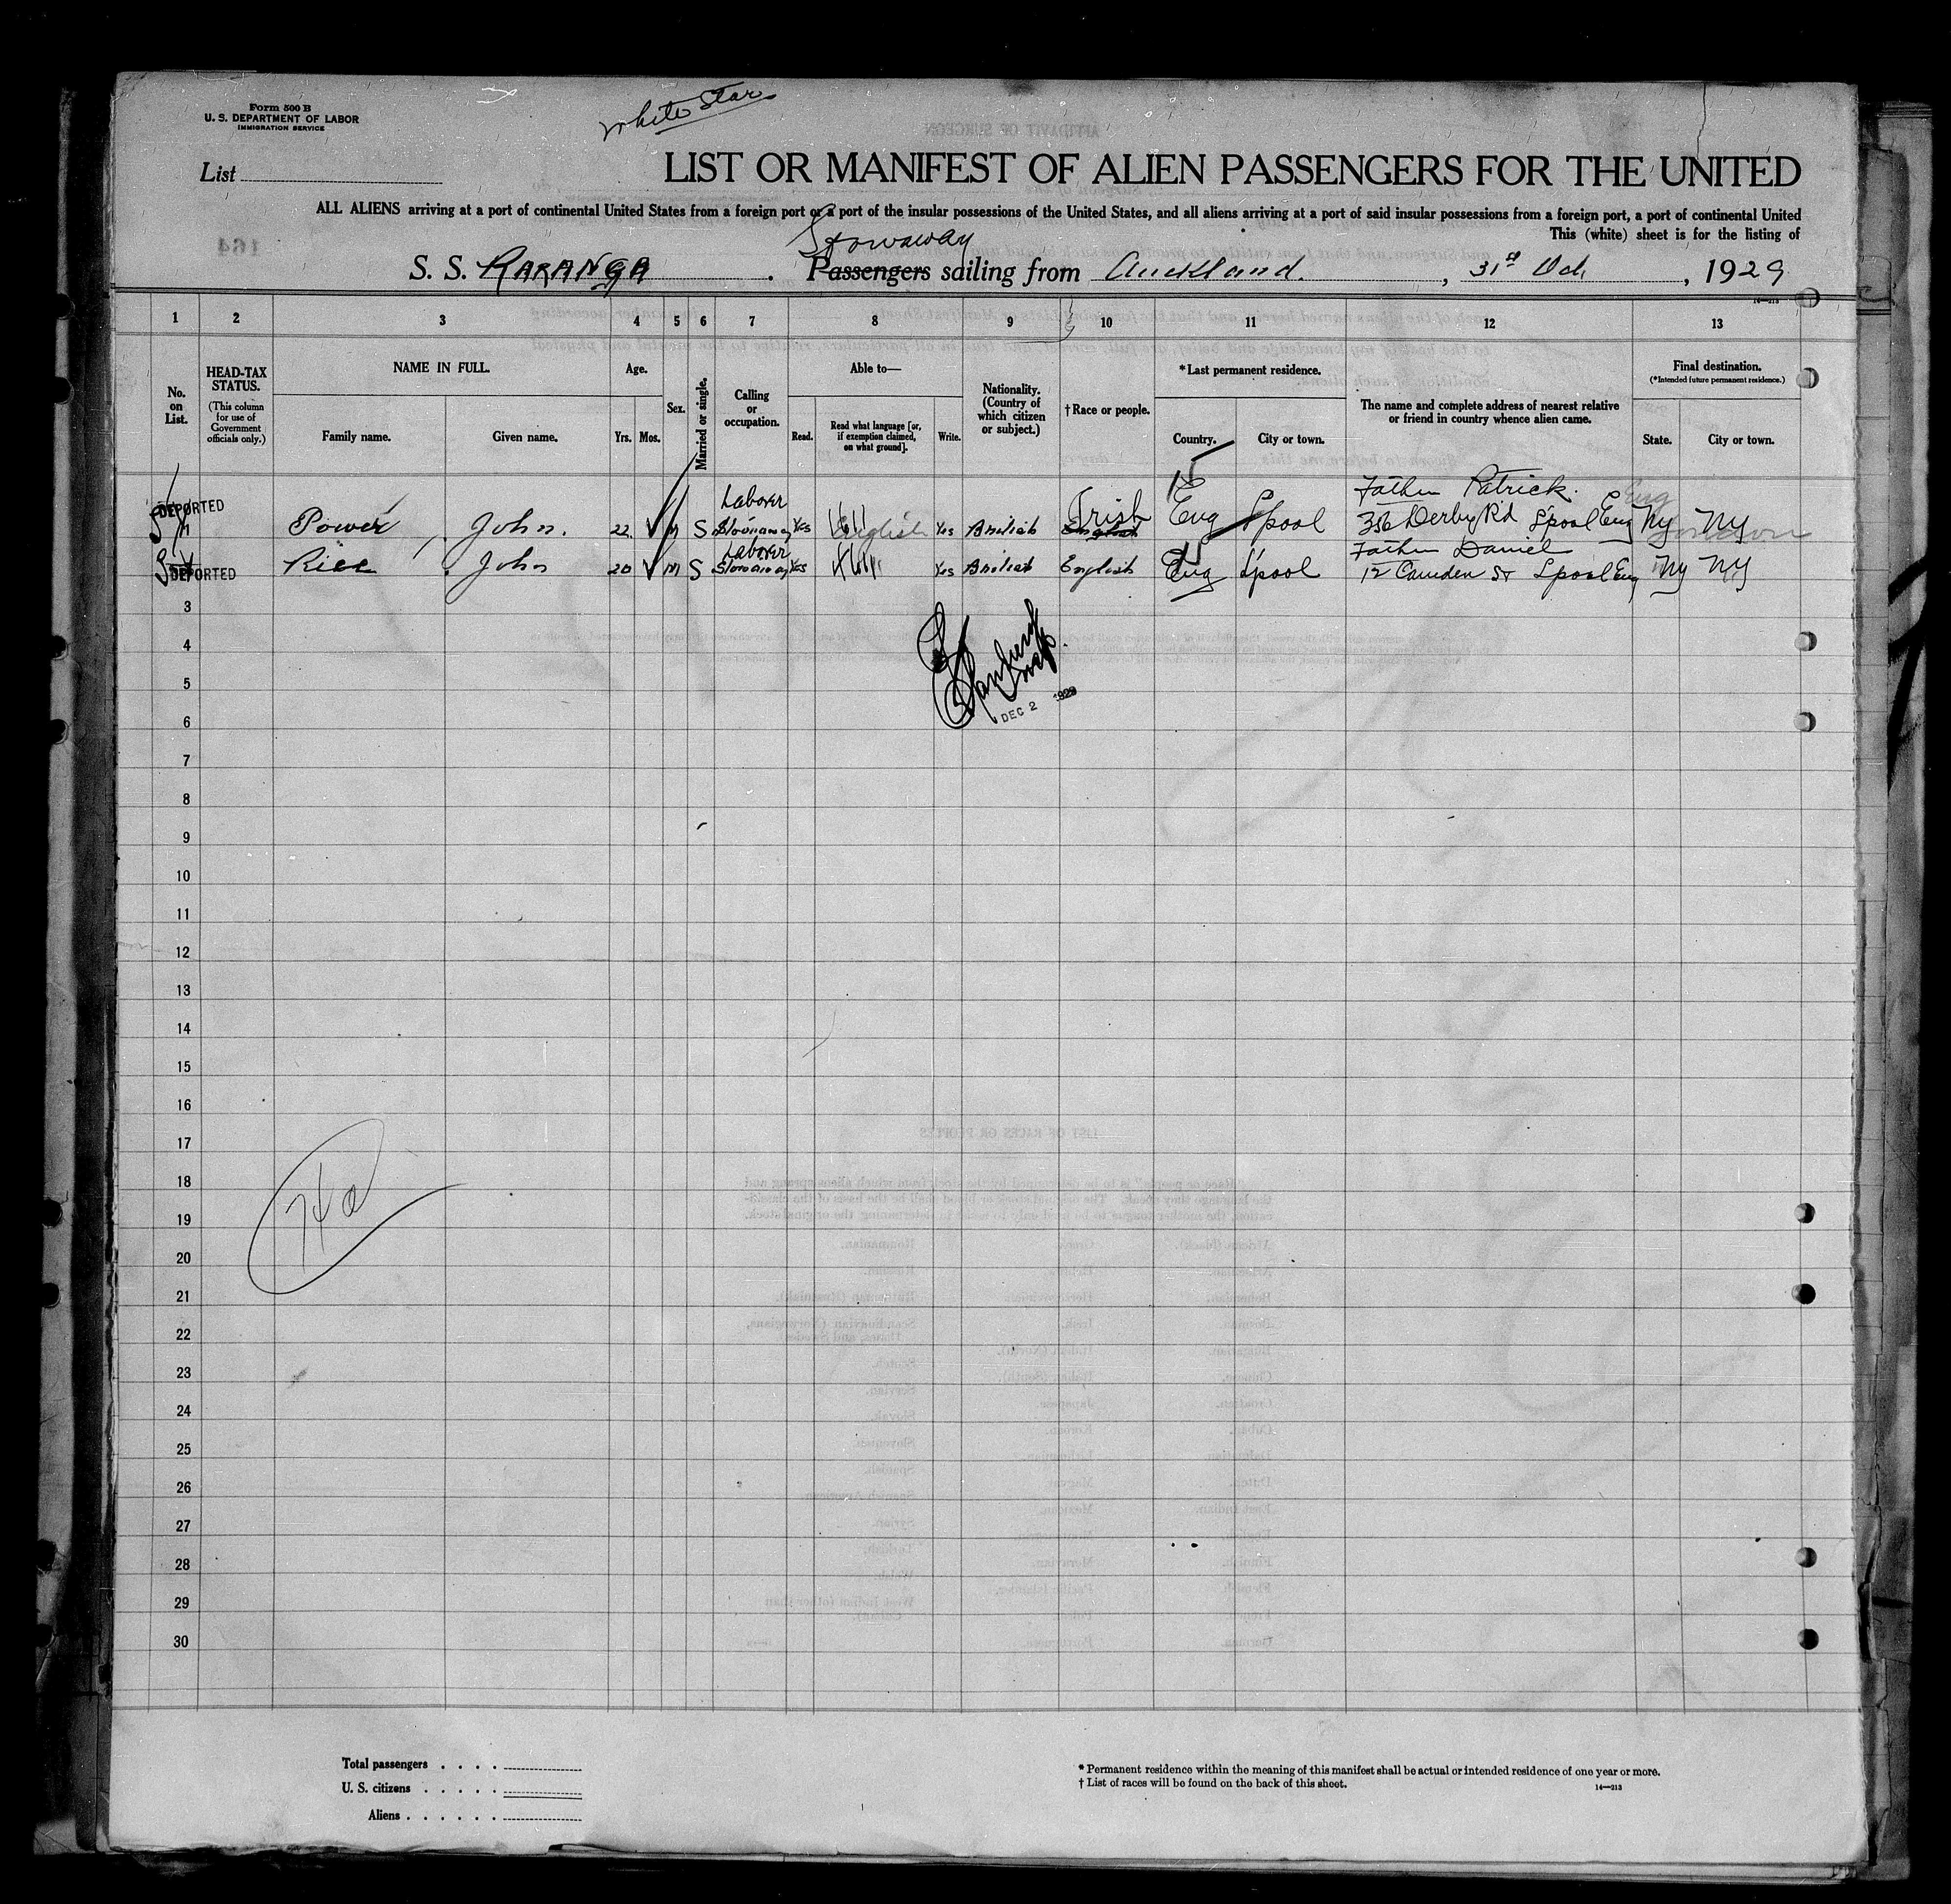 Form 500 B
U. S. DEPARTMENT OF LABOR
IMMIGRATION SERVICE
White Star
List
LIST OR MANIFEST OF ALIEN PASSENGERS FOR THE UNITED
ALL ALIENS arriving at a port of continental United States from a foreign port or a port of the insular possessions of the United States, and all aliens arriving at a port of said insular possessions from a foreign port, a port of continental United
This (white) sheet is for the listing of
Stowaway
S. S. KARANGA . Passengers sailing from Auckland. , 31st Oct , 1929
14—213
1 2 3 4 5 6 7 8 9 10 11 12 13
No. on List.
HEAD-TAX STATUS.
(This column for use of Government officials only.)
NAME IN FULL.
Family name. Given name.
Age.
Yrs. Mos.
Sex.
Married or single.
Calling or occupation.
Able to—
Read. Read what language [or, if exemption claimed, on what ground]. Write.
Nationality. (Country of which citizen or subject.)
† Race or people.
* Last permanent residence.
Country. City or town.
The name and complete address of nearest relative or friend in country whence alien came.
Final destination.
(* Intended future permanent residence.)
State. City or town.
Laborer Father Patrick.
DEPORTED
Power John. 22 M S Stowaway Yes English Yes British English Irish Eng L'pool 356 Derby Rd L'pool Eng Ny Ny
Laborer Father Daniel
Rice John 20 M S Stowaway Yes Yes British English Eng L'pool 12 Camden St L'pool Eng Ny Ny
DEPORTED
3
4
5
DEC 2 1929
6
7
8
9
10
11
12
13
14
15
16
17
18
19
20
21
22
23
24
25
26
27
28
29
30
Total passengers
U. S. citizens
Aliens
* Permanent residence within the meaning of this manifest shall be actual or intended residence of one year or more.
† List of races will be found on the back of this sheet.
14—213